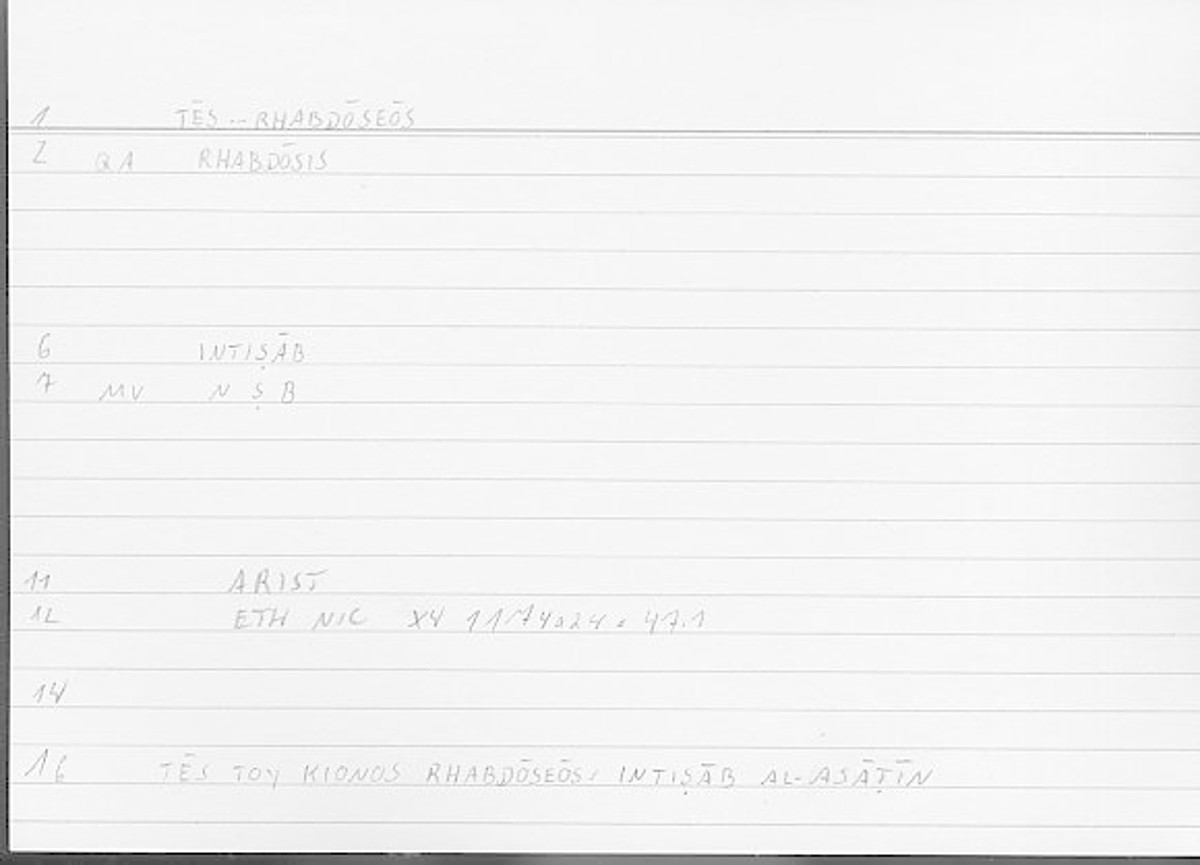 1 TĒS -- RHABDŌSEŌS
2 QA RHABDŌSIS
6 INTIṢĀB
7 MV N Ṣ B
11 ARIST
12 ETH NIC X4 1174a24 = 47.1
14
16 TĒS TOY KIONOS RHABDŌSEŌS: INTIṢĀB AL-ASĀṬĪN